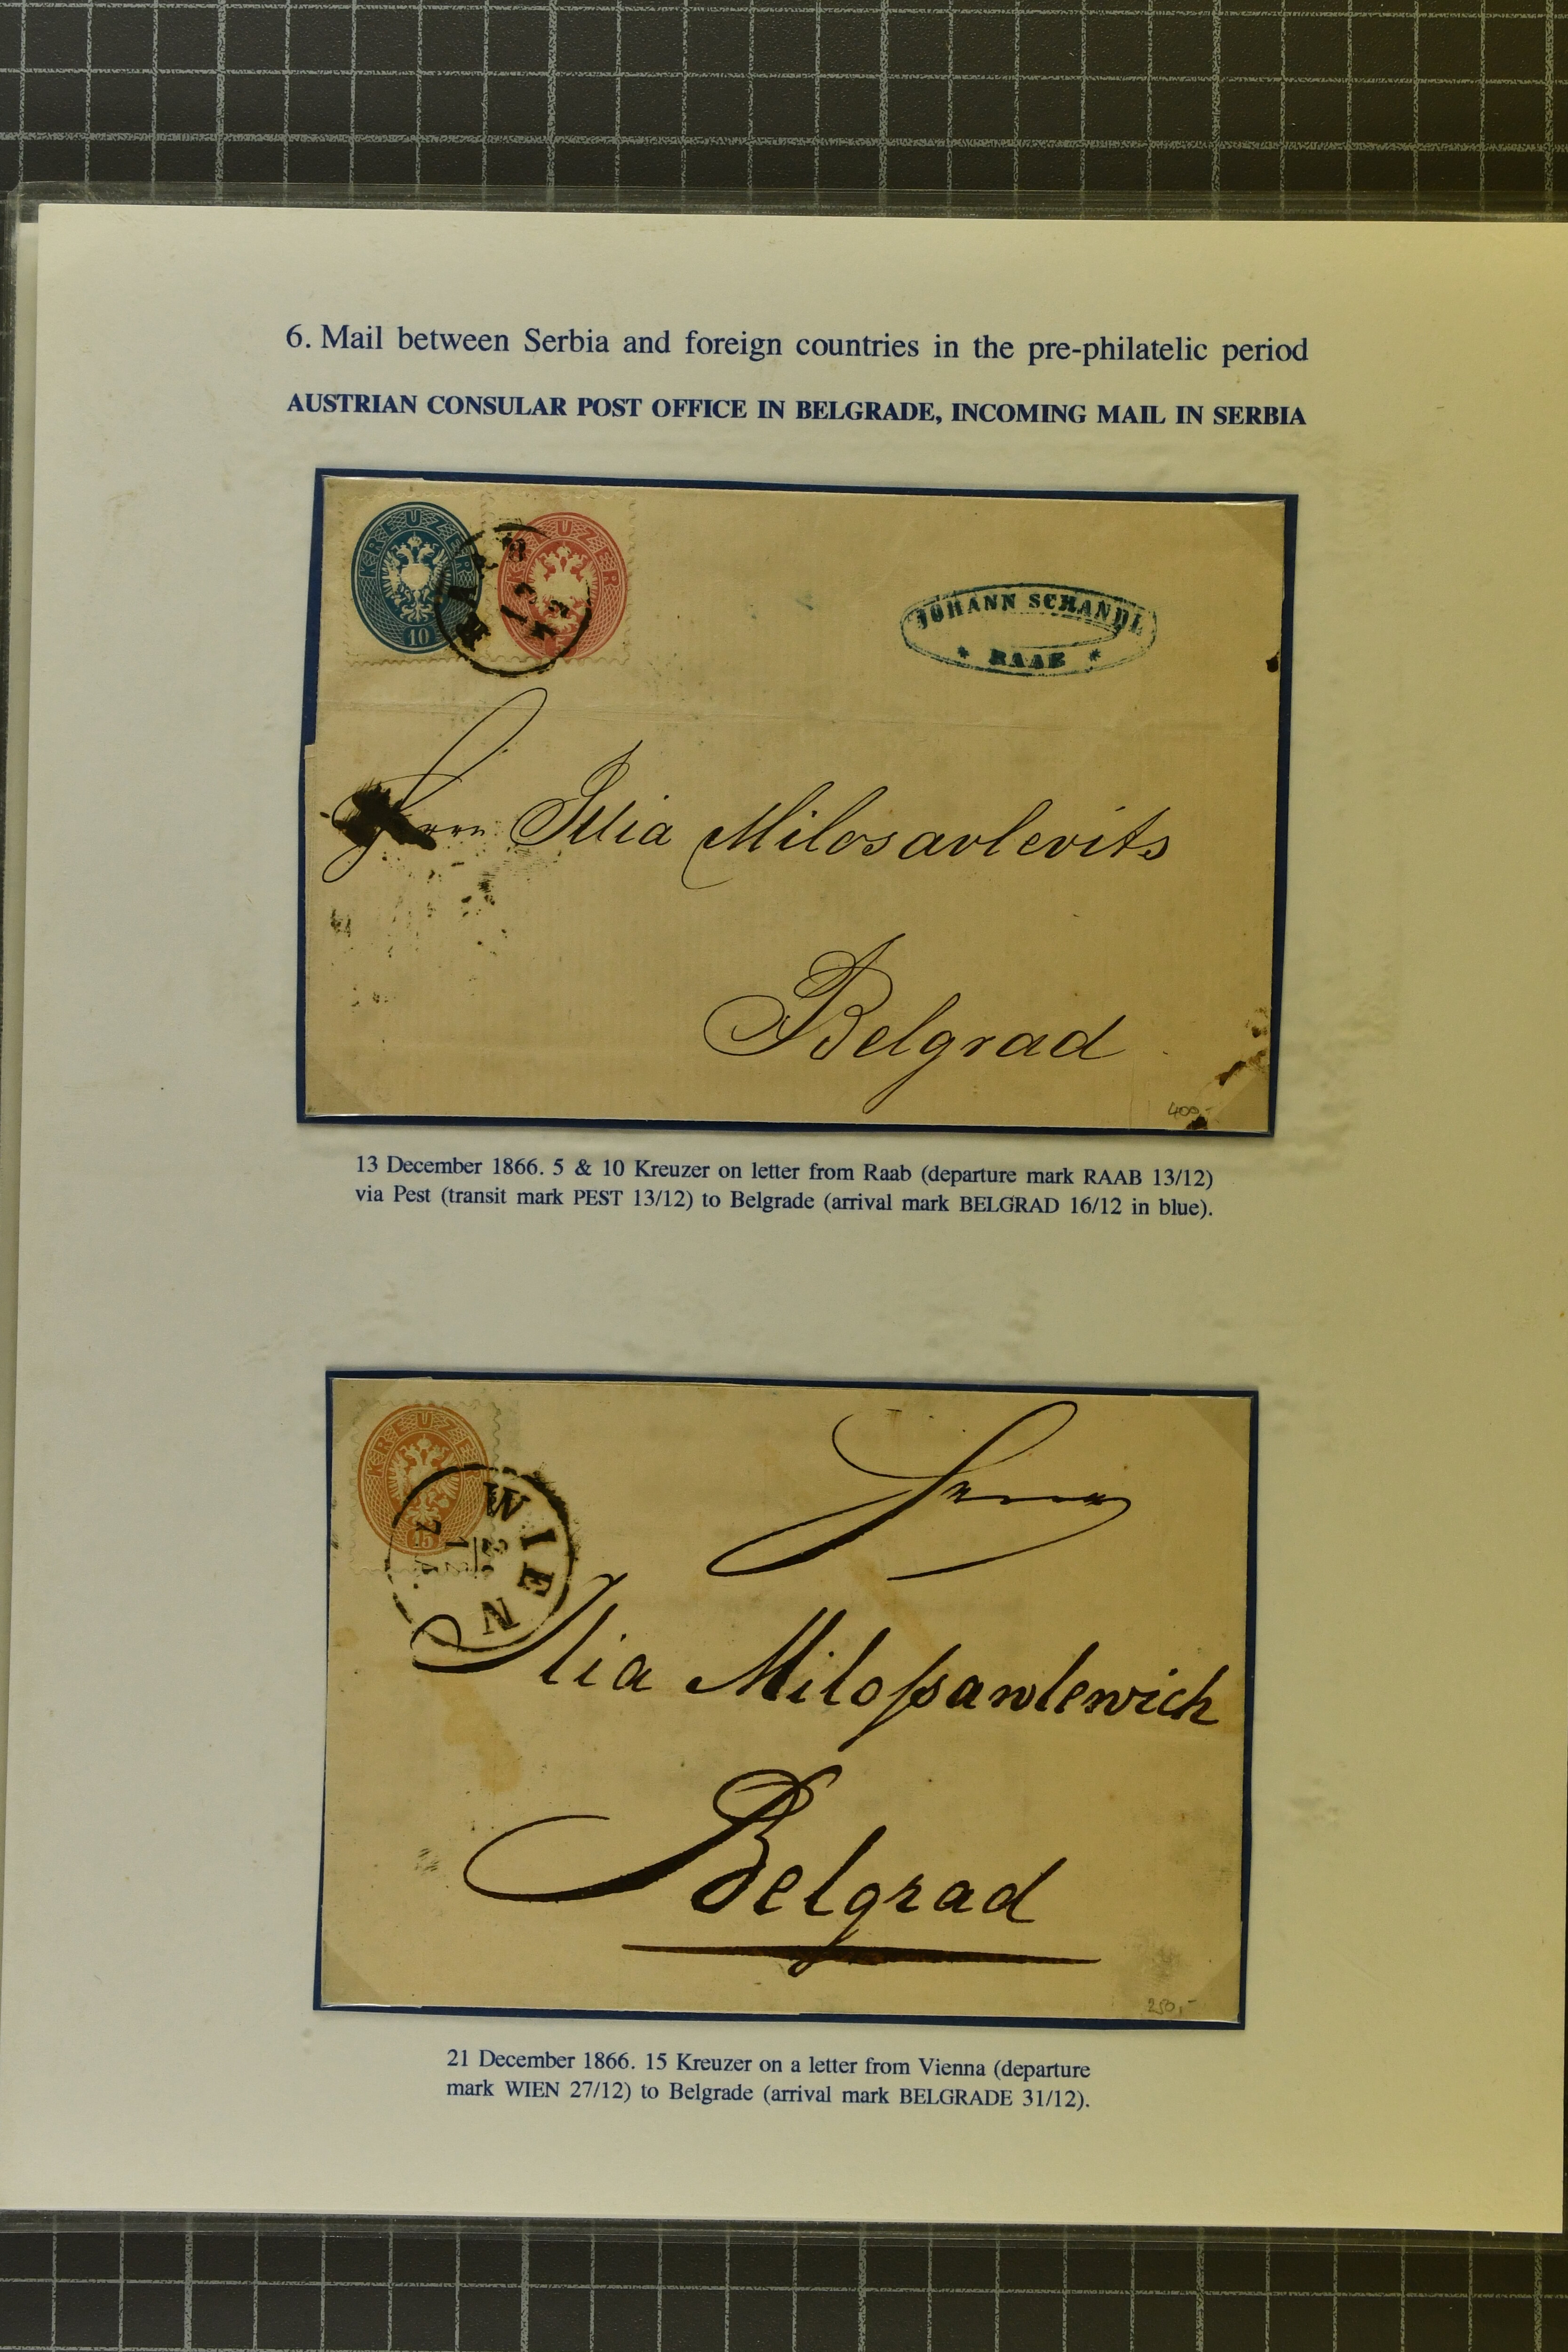 6. Mail between Serbia and foreign countries in the pre-philatelic period
AUSTRIAN CONSULAR POST OFFICE IN BELGRADE, INCOMING MAIL IN SERBIA
KREUZER
10
KREUZER
RAAB
13
12
JOHANN SCHANDL
* RAAB *
Herrn Illia Milosavlevits
Belgrad
400,-
13 December 1866. 5 & 10 Kreuzer on letter from Raab (departure mark RAAB 13/12)
via Pest (transit mark PEST 13/12) to Belgrade (arrival mark BELGRAD 16/12 in blue).
KREUZER
15
WIEN
27
12
Herrn
Ilia Miloßawlewich
Belgrad
250,-
21 December 1866. 15 Kreuzer on a letter from Vienna (departure
mark WIEN 27/12) to Belgrade (arrival mark BELGRADE 31/12).